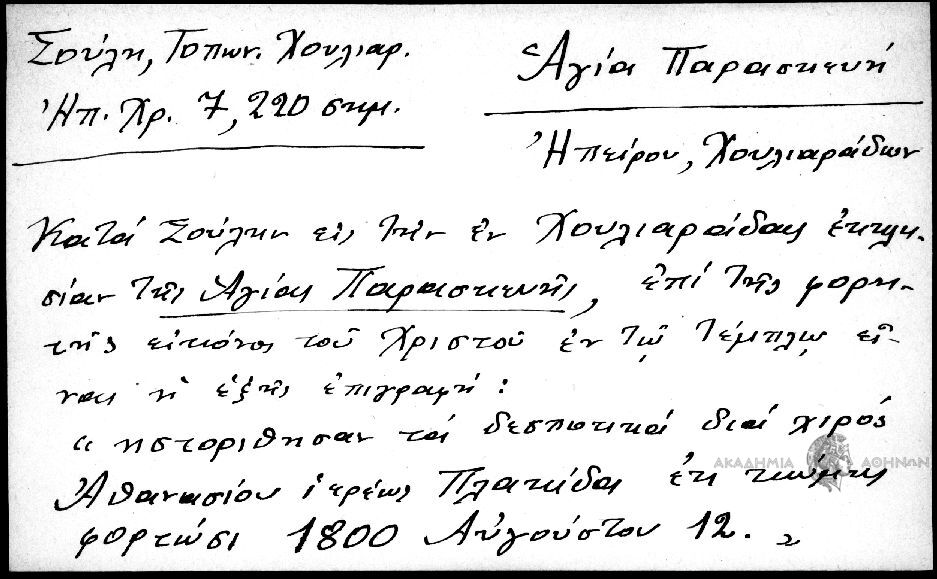 Σούλη, Τοπων. Χουλιαρ.
Ἠπ. Χρ. 7, 220 σημ.
Ἁγία Παρασκευή
Ἠπείρου, Χουλιαράδων
Κατά Σούλην εἰς τήν ἐν Χουλιαράδας ἐκκλη-
σίαν τῆς Ἁγίας Παρασκευῆς, ἐπί τῆς φορη-
τῆς εἰκόνος τοῦ Χριστοῦ ἐν τῷ τέμπλῳ εἶ-
ναι ἡ ἑξῆς ἐπιγραφή:
" ηστορίθησαν τά δεσποτικά διά χιρός
ΑΚΑΔΗΜΙΑ ΑΘΗΝΩΝ
Ἀθανασίου ἱερέως Πλακίδας ἐκ κώμης
φορτώσι 1800 Αὐγούστου 12. "